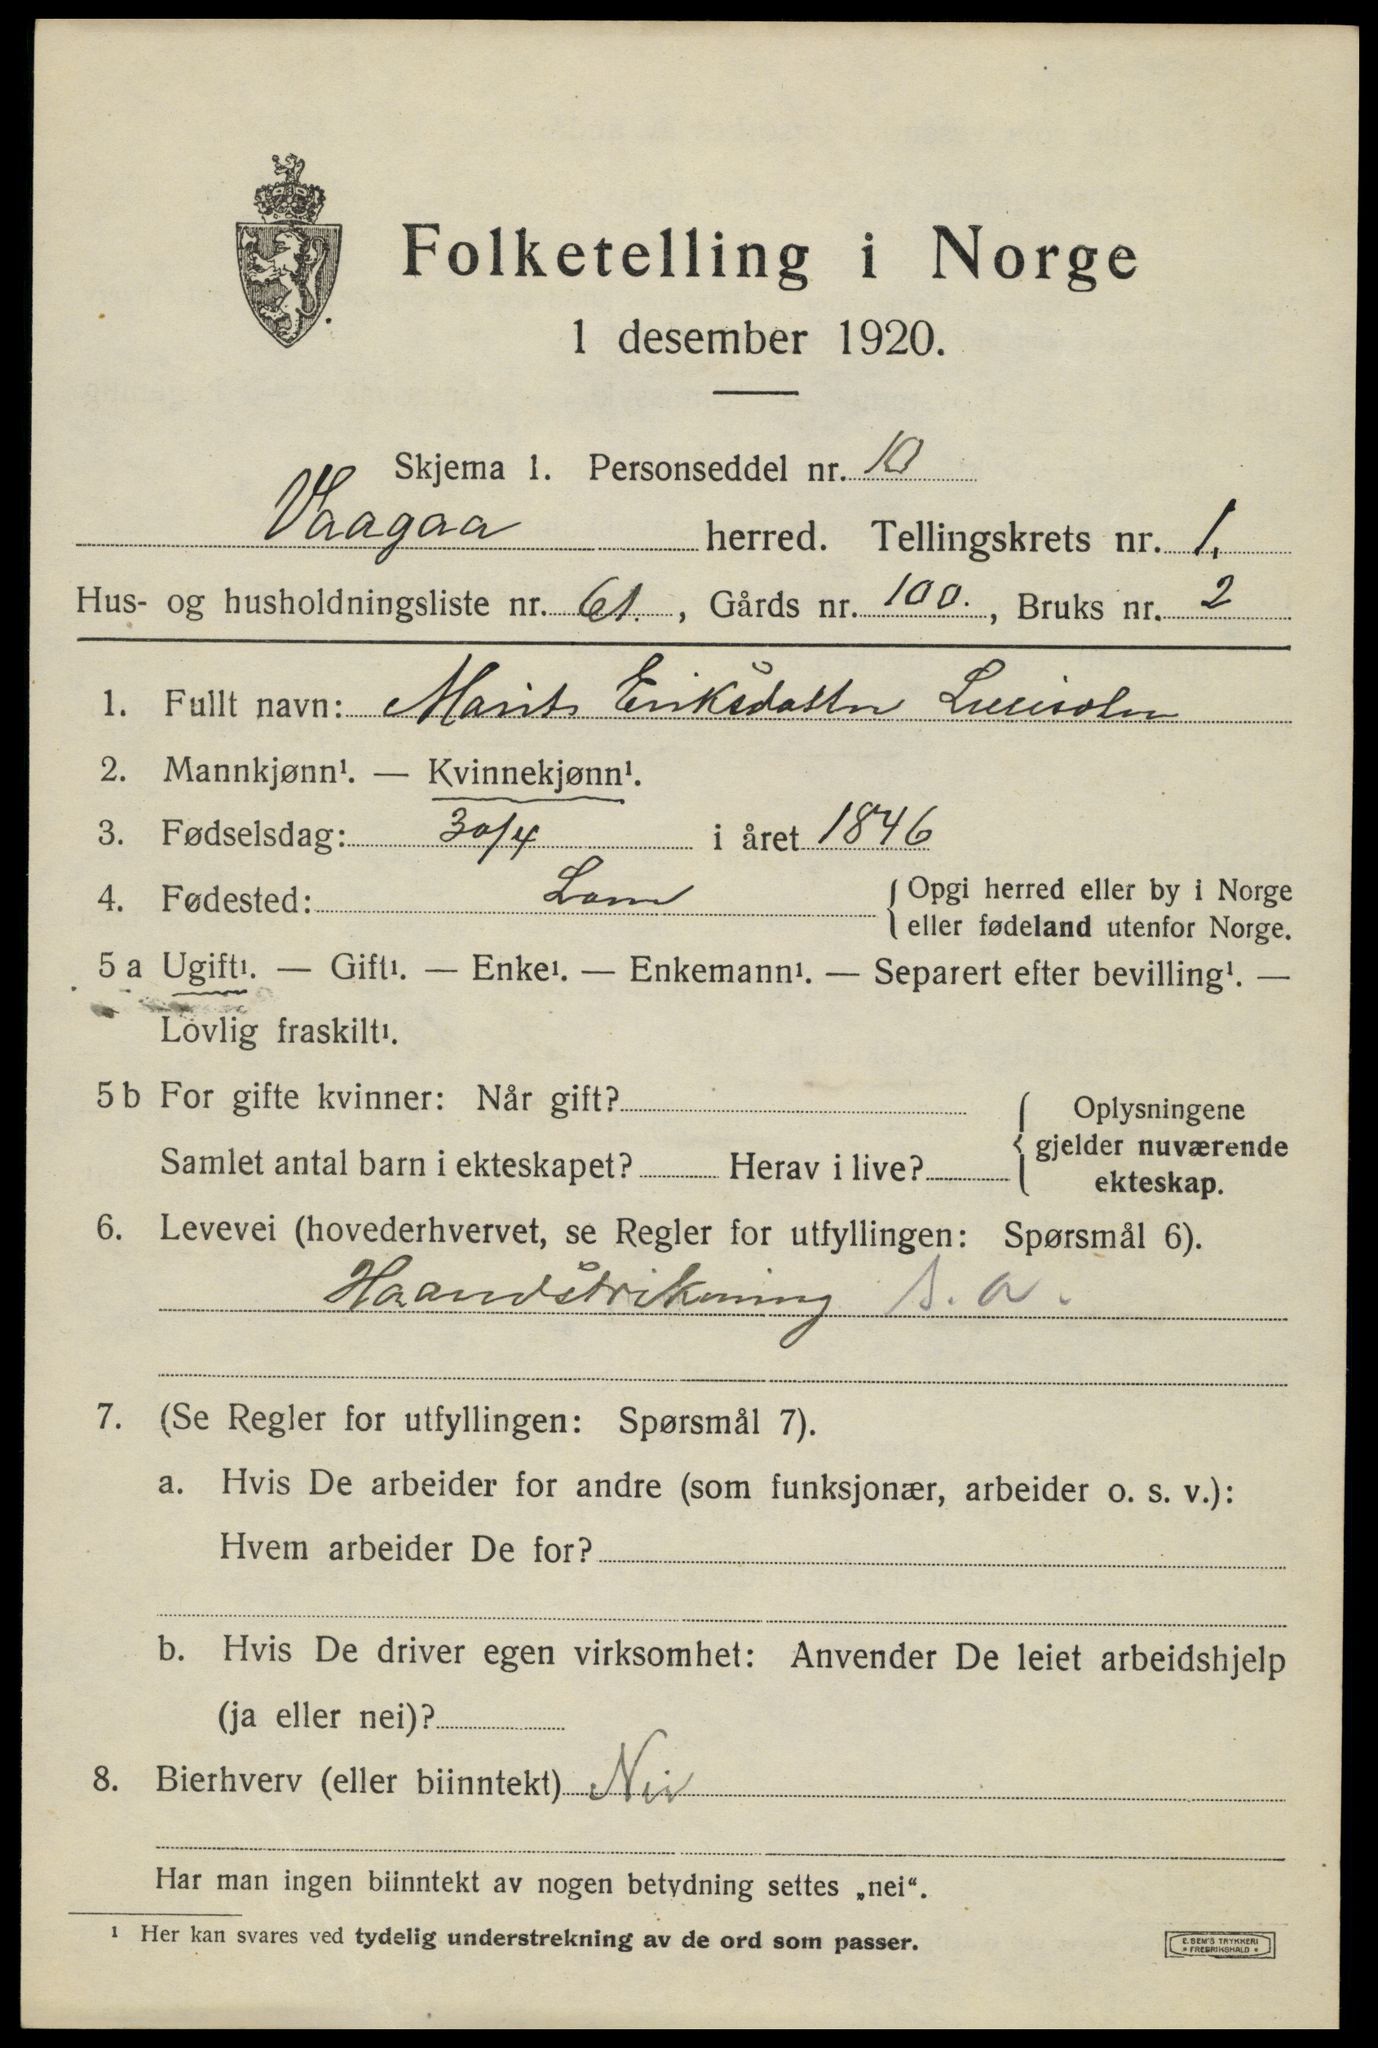 Folketelling i Norge
1 desember 1920.
Skjema 1. Personseddel nr. 10
Vaagaa herred. Tellingskrets nr. 1.
Hus- og husholdningsliste nr. 61., Gårds nr. 100., Bruks nr. 2
1. Fullt navn: Marit Eriksdatter
2. Mannkjønn¹. — Kvinnekjønn¹.
3. Fødselsdag: 30/4 i året 1846
4. Fødested: Lom { Opgi herred eller by i Norge
eller fødeland utenfor Norge.
5 a Ugift¹. — Gift¹. — Enke¹. — Enkemann¹. — Separert efter bevilling¹. —
Lovlig fraskilt¹.
5 b For gifte kvinner: Når gift?
Samlet antal barn i ekteskapet? Herav i live?
{ Oplysningene
gjelder nuværende
ekteskap.
6. Levevei (hovederhvervet, se Regler for utfyllingen: Spørsmål 6).
Haandstrikning s. a.
7. (Se Regler for utfyllingen: Spørsmål 7).
a. Hvis De arbeider for andre (som funksjonær, arbeider o. s. v.):
Hvem arbeider De for?
b. Hvis De driver egen virksomhet: Anvender De leiet arbeidshjelp
(ja eller nei)?
8. Bierhverv (eller biinntekt) Nei
Har man ingen biinntekt av nogen betydning settes „nei“.
¹ Her kan svares ved tydelig understrekning av de ord som passer.
E. SEM'S TRYKKERI
• FREDRIKSHALD •